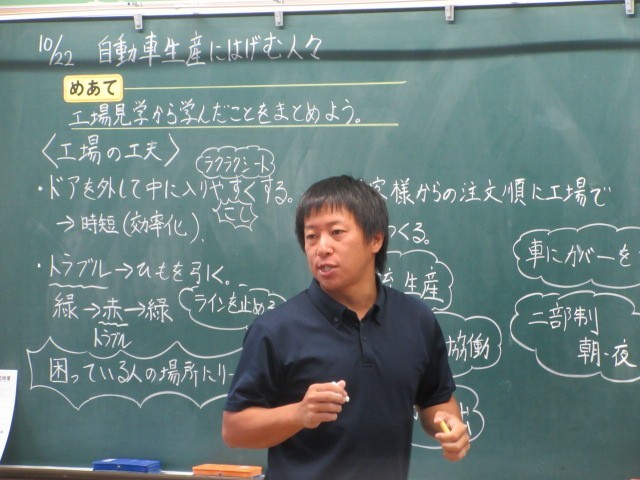 10/22 自動車生産にはげむ人々
めあて
工場見学から学んだことをまとめよう。
〈工場の工夫〉
ラクラクシート
・ドアを外して中に入りやすくする。
→時短(効率化)
・トラブル→ひもを引く。
緑→赤→緑
トラブル
ラインを止める
困っている人の場所にリー
客様からの注文順に工場で
くる。
生産
協働
車にカバーを
二部制
朝・夜